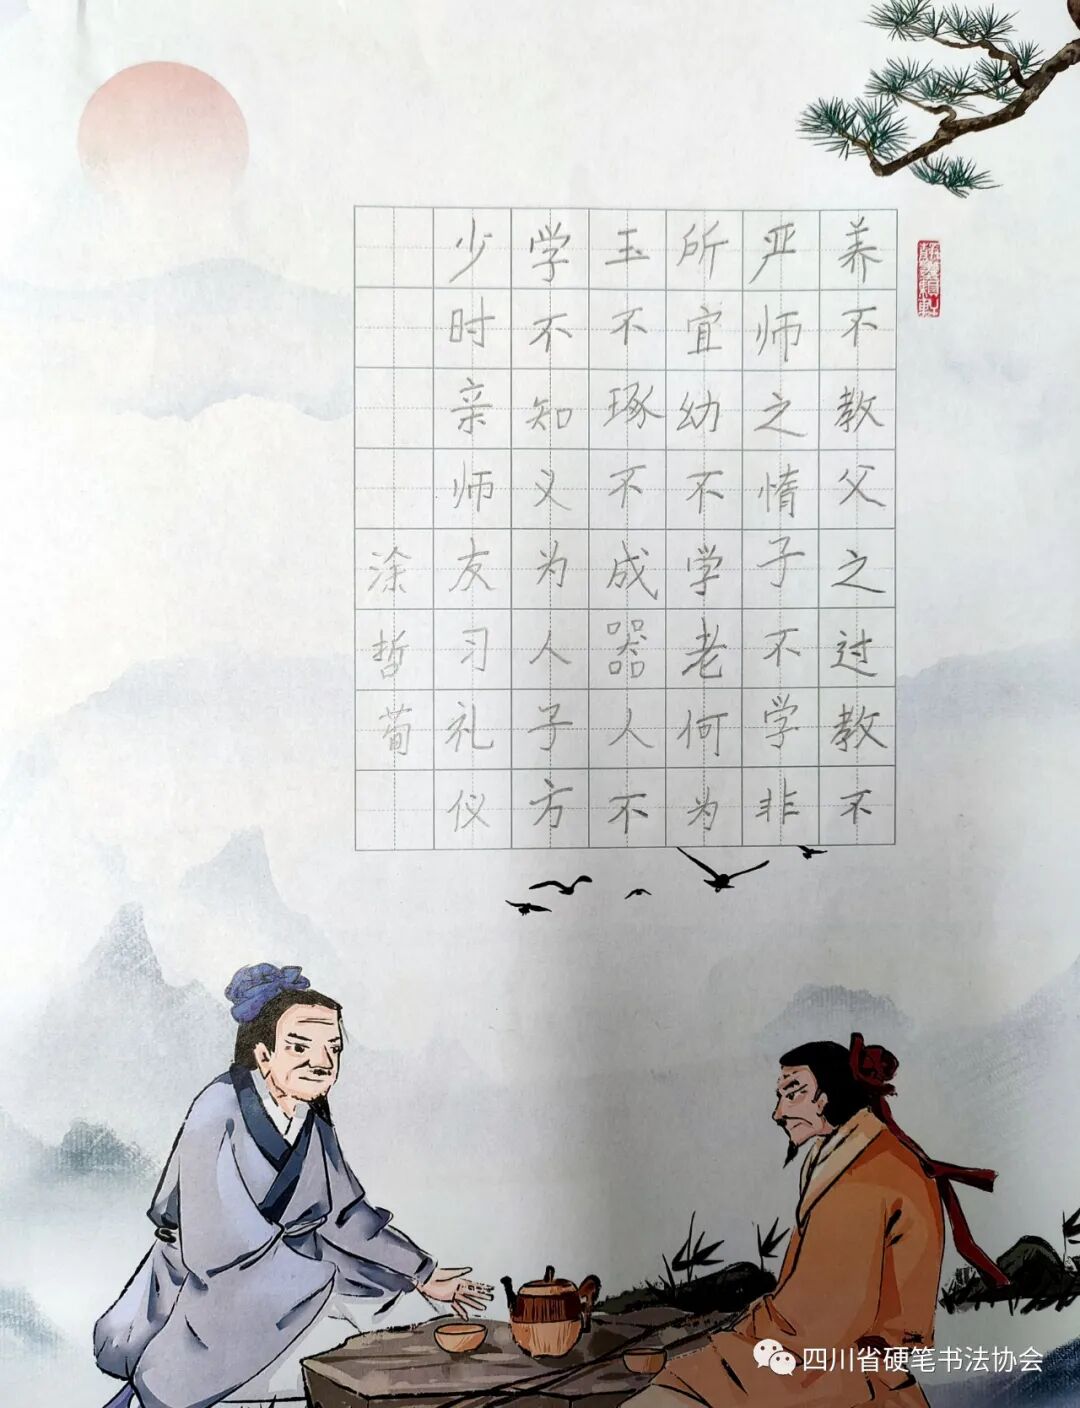 养不教父之过教不
严师之惰子不学非
所宜幼不学老何为
玉不琢不成器人不
学不知义为人子方
少时亲师友习礼仪
涂哲蔔
四川省硬笔书法协会